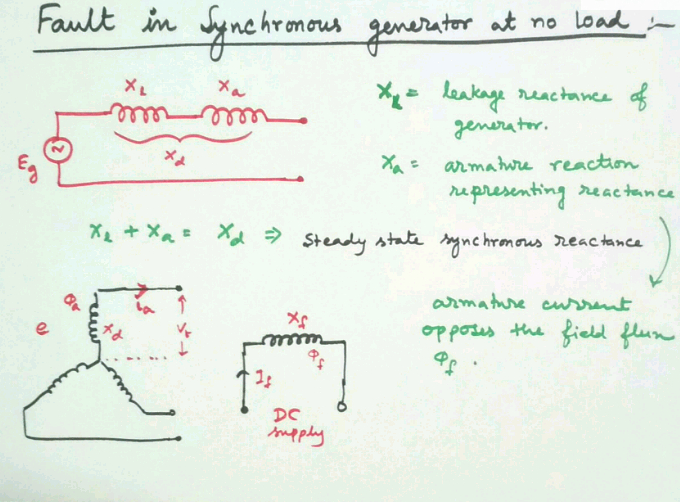 Fault in Synchronous generator at no load :-
X_l X_a
X_d
E_g
~
X_l = leakage reactance of
generator.
X_a = armature reaction
representing reactance
X_l + X_a = X_d ⇒ Steady state synchronous reactance
armature current
opposes the field flux
Φ_f .
Φ_a i_a
e X_d V_t
X_f
Φ_f
I_f
DC
supply